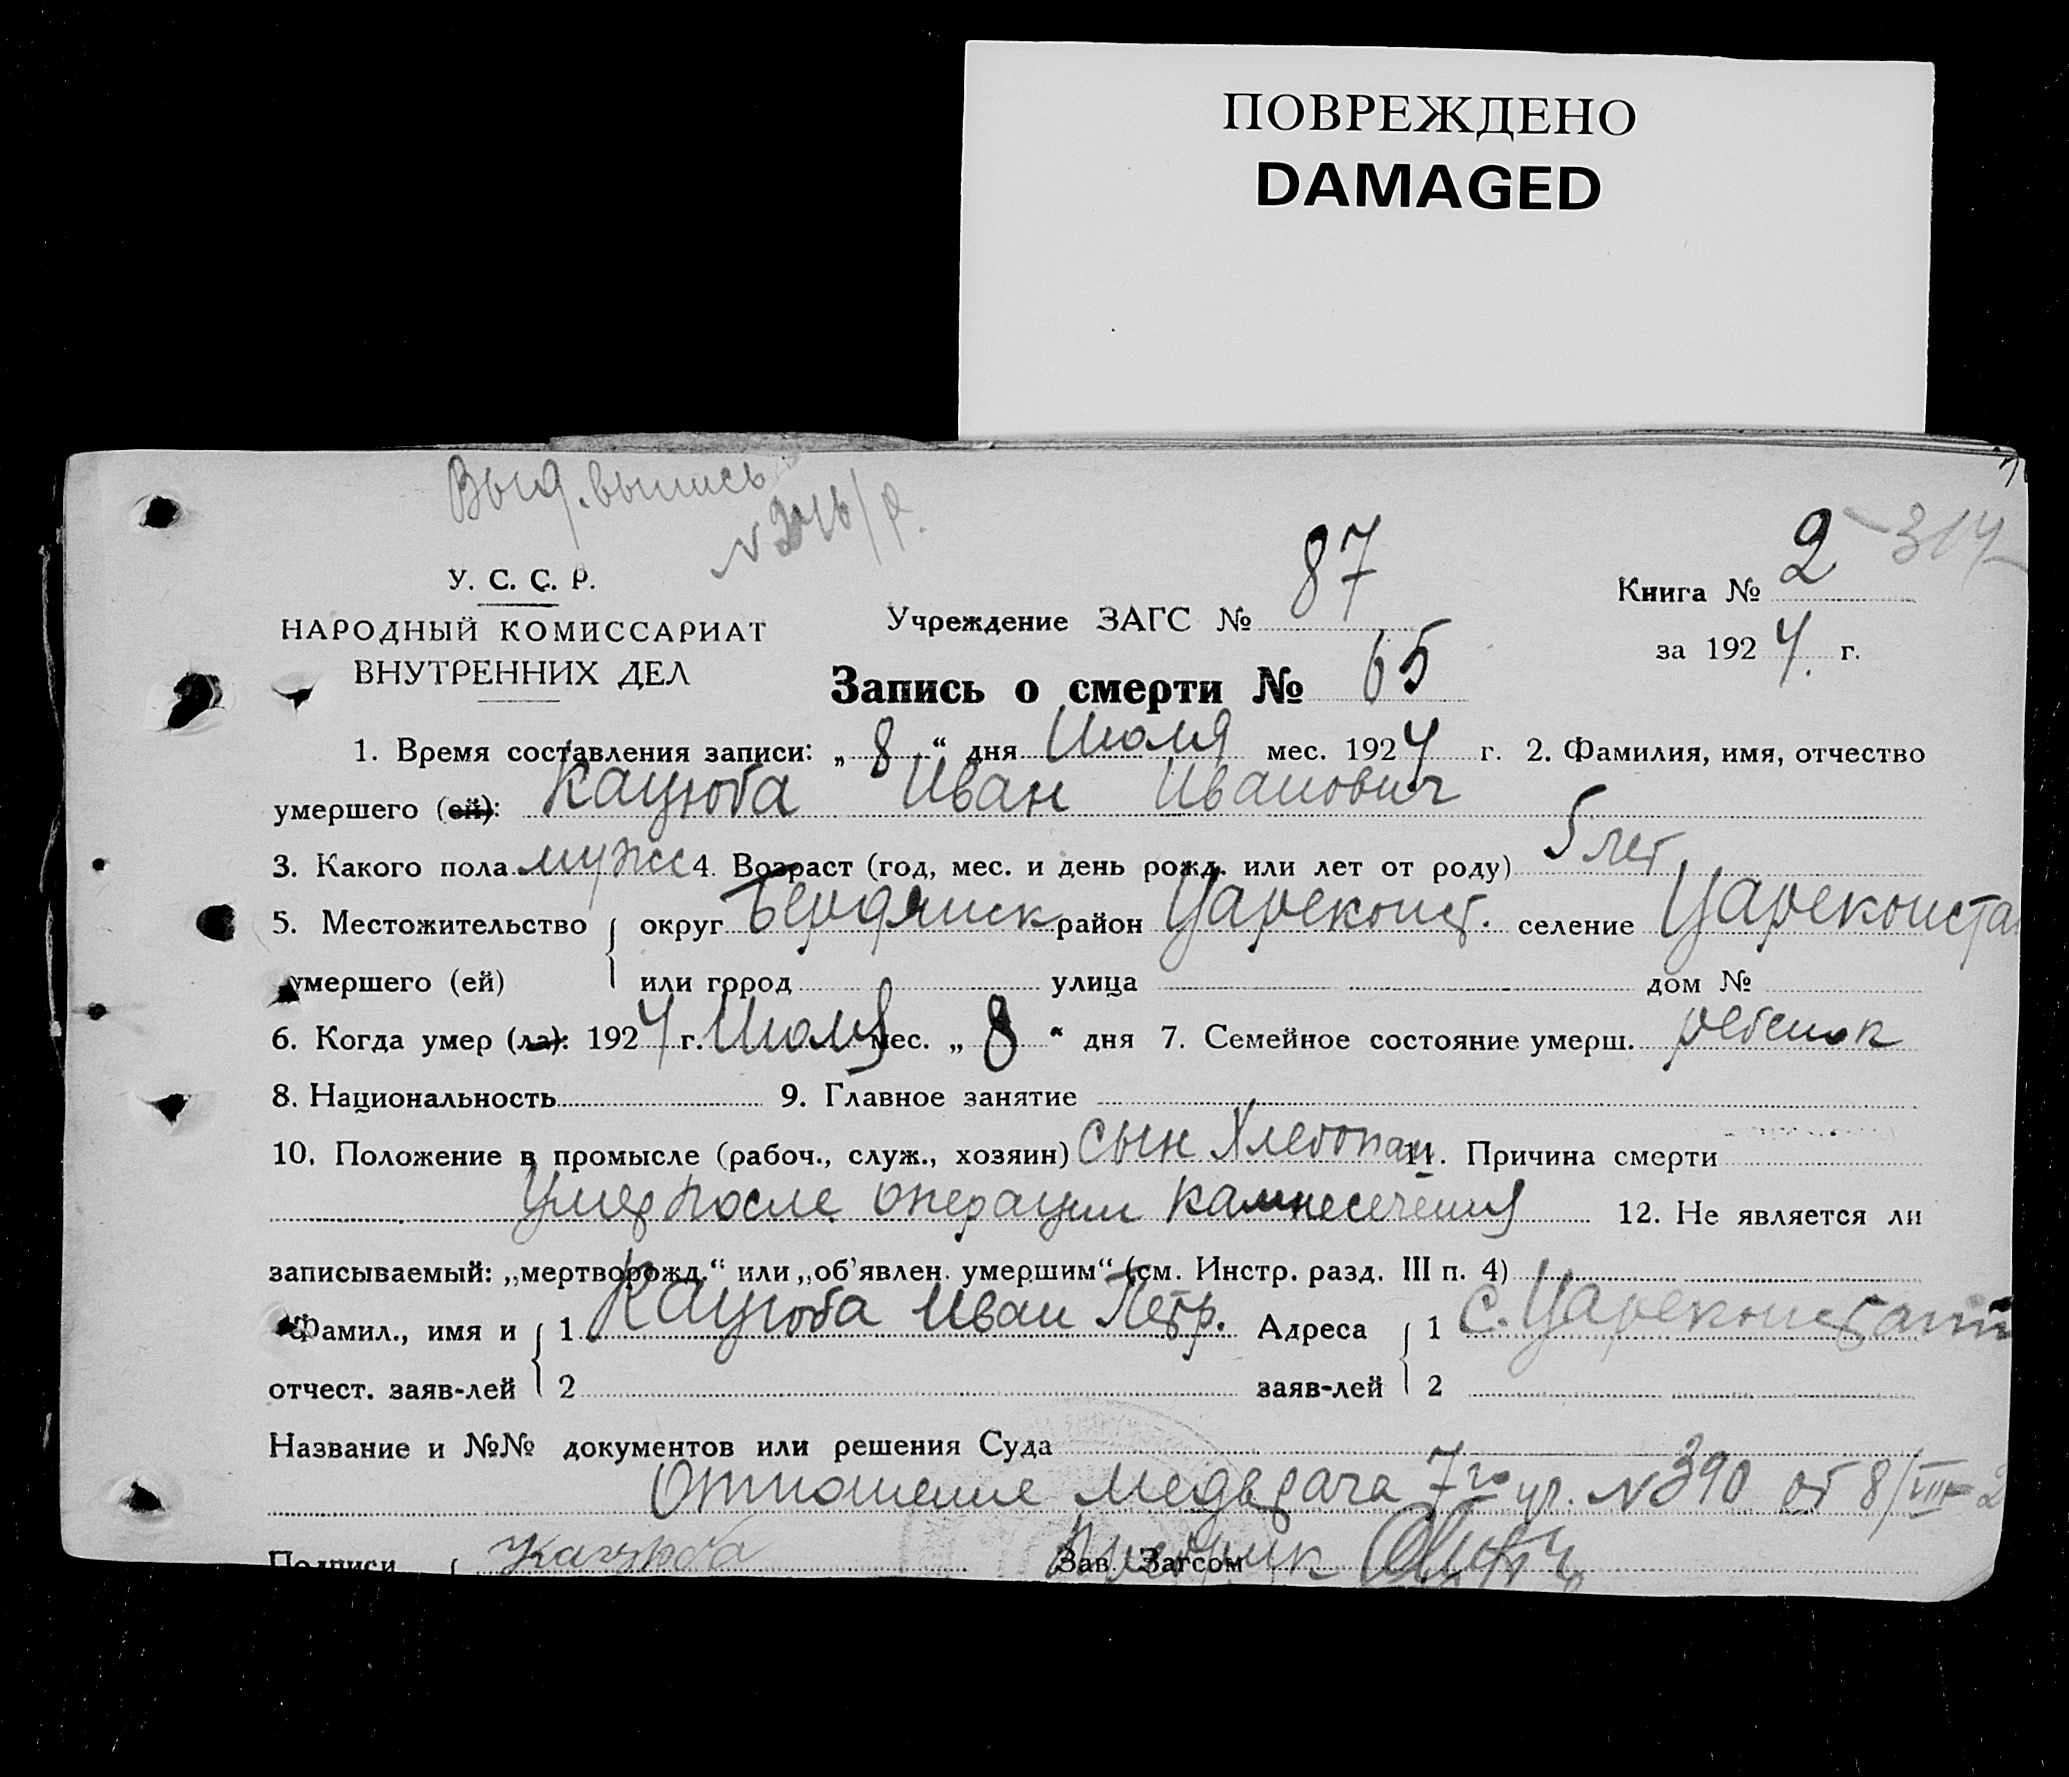 ПОВРЕЖДЕНО
DAMAGED
Выд. выпись
У. С. С. Р.
НАРОДНЫЙ КОМИССАРИАТ
ВНУТРЕННИХ ДЕЛ
Учреждение ЗАГС № 87
Книга № 2 - 314
за 1924 г.
Запись о смерти № 65
1. Время составления записи: „ 8 “ дня Июля мес. 1924 г. 2. Фамилия, имя, отчество
умершего (ей): Кацюба Иван Иванович
3. Какого пола муж 4. Возраст (год, мес. и день рожд. или лет от роду) 5 лет
5. Местожительство округ Бердянск район Цареконст. селение Цареконста
умершего (ей) или город улица дом №
6. Когда умер (ла): 1924 г. Июля мес. „ 8 “ дня 7. Семейное состояние умерш. ребенок
8. Национальность 9. Главное занятие
10. Положение в промысле (рабоч., служ., хозяин) Сын Хлебопаш 11. Причина смерти
Умер после операции камнесечения 12. Не является ли
записываемый: „мертворожд.“ или „об’явлен. умершим“ (см. Инстр. разд. III п. 4)
Фамил., имя и 1 Кацюба Иван Петр. Адреса 1 с. Цареконстант
отчест. заяв-лей 2 заяв-лей 2
Название и №№ документов или решения Суда
Отношение Медврача 7го уч. № 390 от 8/VIII-2
Подписи Кацюба Зав. Загсом